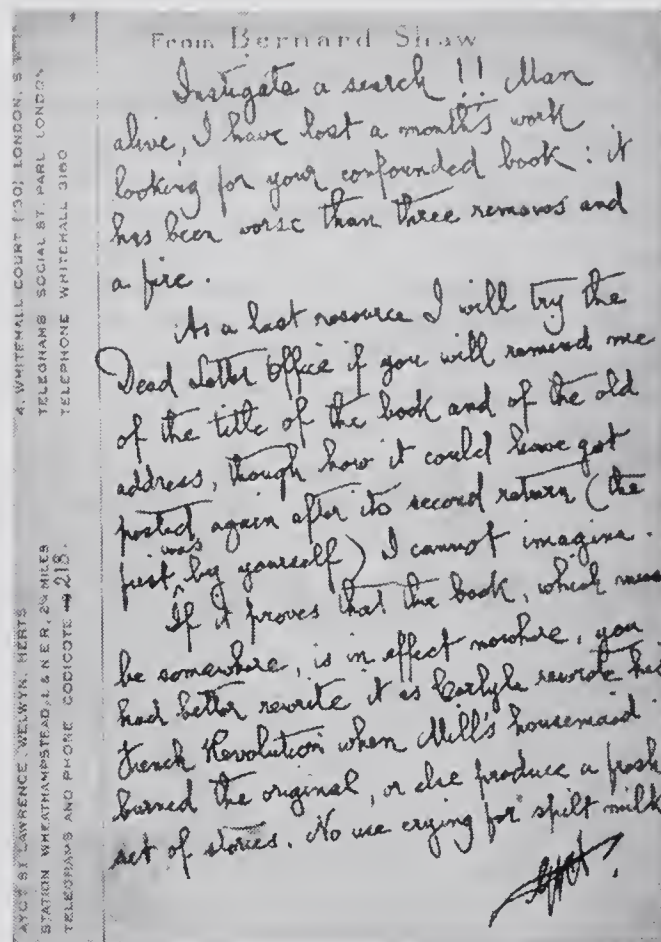 From Bernard Shaw
4, WHITEHALL COURT (130) LONDON, S.W.1.
TELEGRAMS SOCIALST. PARL LONDON
TELEPHONE WHITEHALL 3160
AYOT ST LAWRENCE, WELWYN, HERTS
STATION WHEATHAMPSTEAD, L & N E R, 2¼ MILES
TELEGRAMS AND PHONE CODICOTE 218.
Instigate a search !! Man
alive, I have lost a month's work
looking for your confounded book : it
has been worse than three removes and
a fire.
As a last resource I will try the
Dead Letter Office if you will remind me
of the title of the book and of the old
address, though how it could have got
posted again after its second return (the
first was by yourself) I cannot imagine.
If it proves that the book, which must
be somewhere, is in effect nowhere, you
had better rewrite it as Carlyle rewrote his
French Revolution when Mill's housemaid
burned the original, or else produce a fresh
set of stories. No use crying for spilt milk